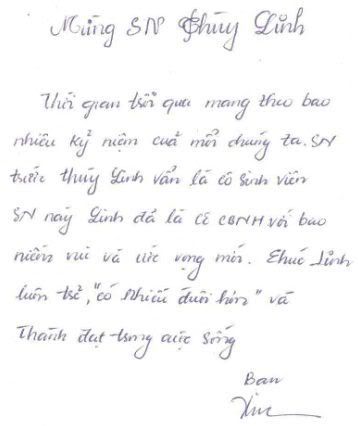 Mừng SN Thùy Linh
Thời gian trôi qua mang theo bao
nhiêu kỷ niệm của mỗi chúng ta. SN
trước Thùy Linh vẫn là cô sinh viên
SN này Linh đã là cô CBNH với bao
niềm vui và ước vọng mới. Chúc Linh
luôn trẻ, "có nhiều đuôi hơn" và
thành đạt trong cuộc sống
Bạn